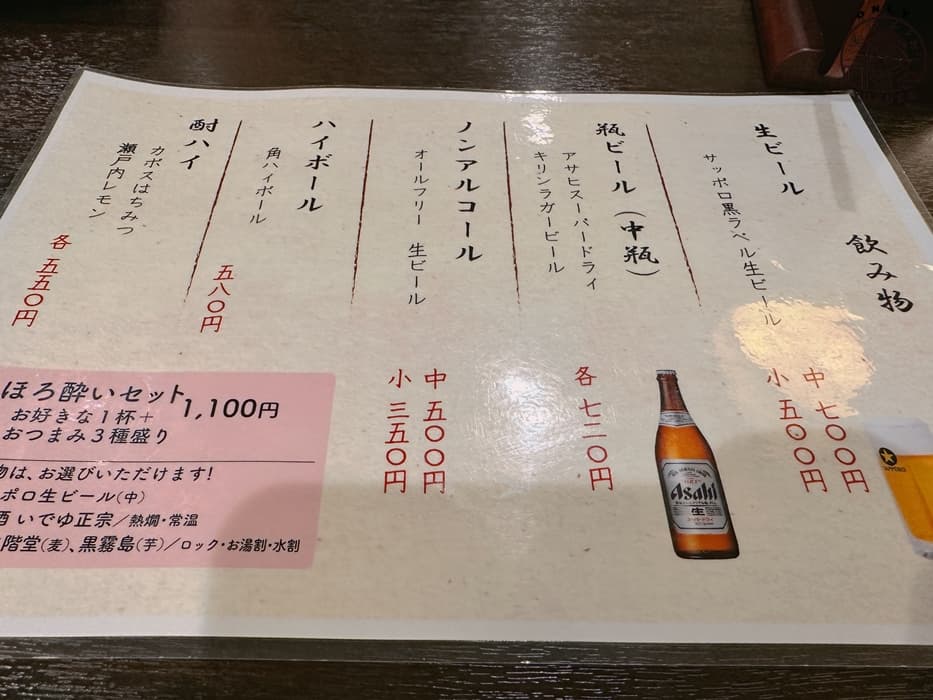 飲み物
生ビール
サッポロ黒ラベル生ビール
中 七〇〇円
小 五〇〇円
瓶ビール(中瓶)
アサヒスーパードライ
キリンラガービール
各 七二〇円
ノンアルコール
オールフリー 生ビール
中 五〇〇円
小 三五〇円
ハイボール
角ハイボール
五八〇円
酎ハイ
カボスはちみつ
瀬戸内レモン
各 五五〇円
ほろ酔いセット 1,100円
お好きな1杯+
おつまみ3種盛り
物は、お選びいただけます!
ポロ生ビール(中)
酒 いでゆ正宗/熱燗・常温
階堂(麦)、黒霧島(芋)/ロック・お湯割・水割
Asahi
生